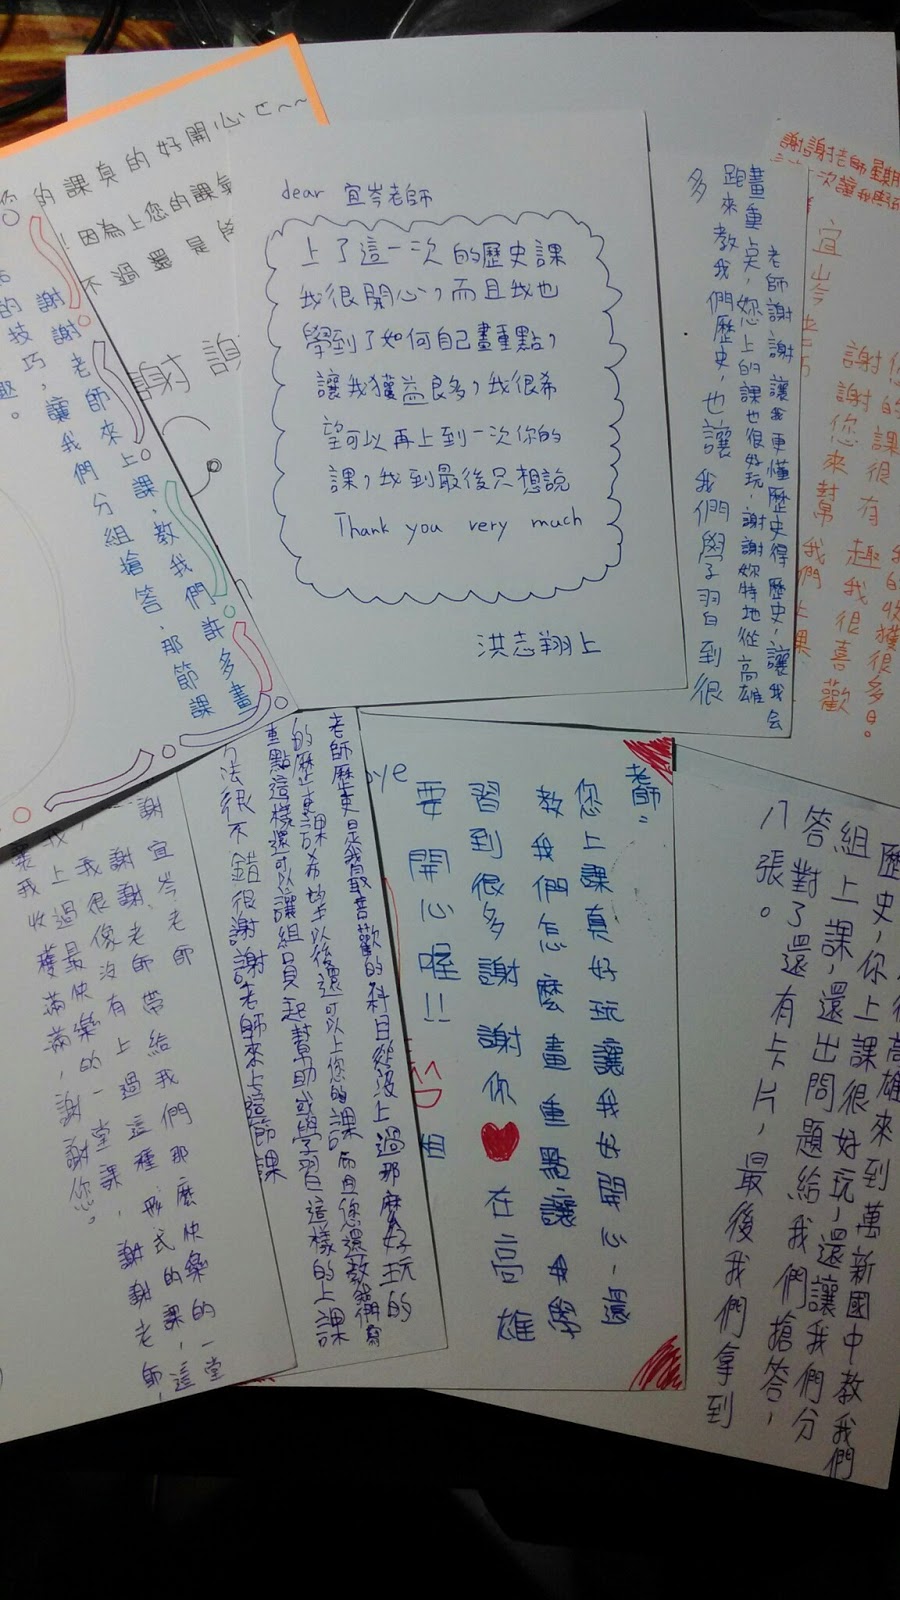 您的課真的好開心ㄛ~~
!因為上您的課氣
不過還是
謝謝
謝謝老師來上課,教我們許多畫
的技巧,讓我們分組搶答,那節課
dear 宜岑老師
上了這一次的歷史課
我很開心,而且我也
學到了如何自己畫重點,
讓我獲益良多,我很希
望可以再上到一次你的
課,我到最後只想說
Thank you very much
洪志翔上
老師謝謝讓我更懂歷史得歷史,讓我会
畫重点,您上的課也很好玩,謝謝妳特地從高雄
跑來教我們歷史,也讓我們學習到很
多
謝謝老師星期
一次讓我
宜岑老師
的收獲很多。
的課很有趣我很喜歡
謝謝您來幫我們上課
謝宜岑老師帶給我們那麼快樂的一堂
謝謝老師
我很像沒有上過這種形式的課,這
我上過最快樂的一堂課,謝謝老師,
讓我收穫滿滿,謝謝您。
老師歷史是我最喜歡的科目從沒上過那麼好玩的
的歷史課希望以後還可以上您的課而且您還教我們寫
重點這樣還可以讓組員一起幫助或學習這樣的上課
方法很不錯很謝謝老師來上這節課
老師:
您上課真好玩讓我好開心,還
教我們怎麼畫重點讓我學
習到很多謝謝你 在高雄
要開心喔!!
從高雄來到萬新國中教我們
歷史,你上課很好玩,還讓我們分
組上課,還出問題給我們搶答,
答對了還有卡片,最後我們拿到
八張。